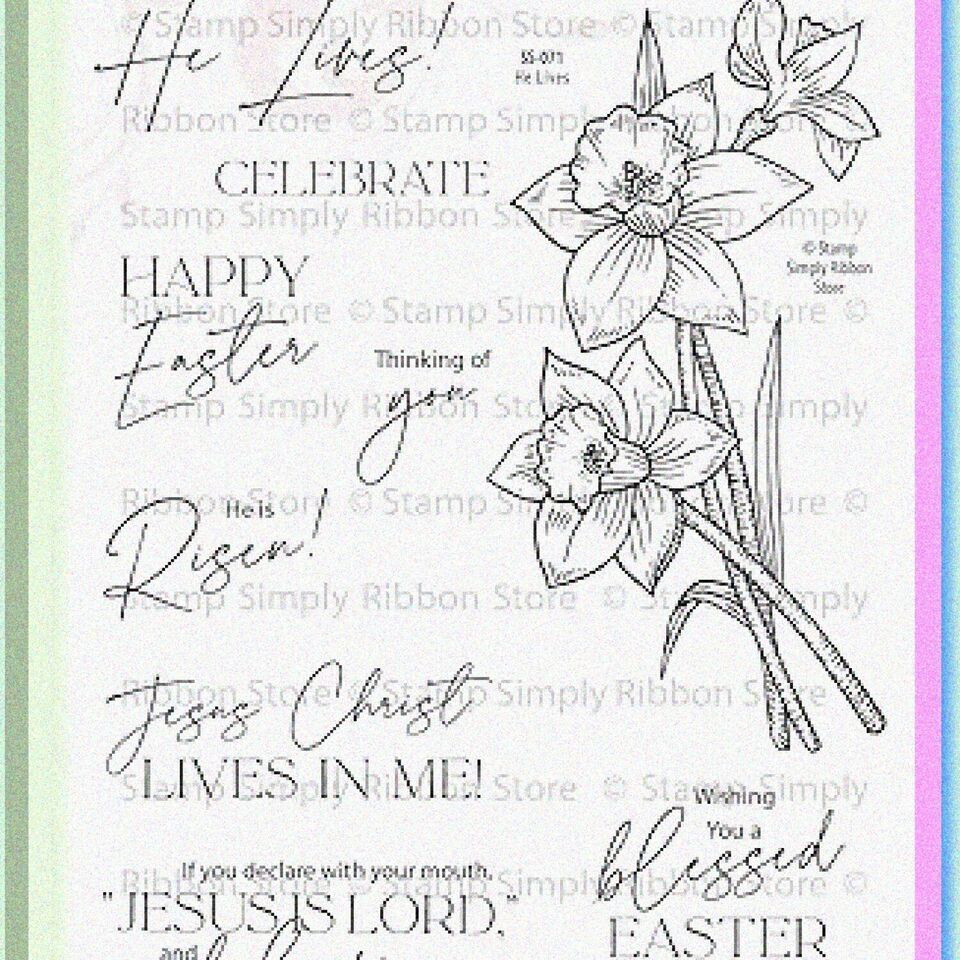 He Lives!
SS-071
He Lives
CELEBRATE
© Stamp
Simply Ribbon
Store
HAPPY
Easter
Thinking of
you
He is
Risen!
Jesus Christ
LIVES IN ME!
Wishing
You a
blessed
EASTER
If you declare with your mouth,
"JESUS IS LORD,"
and
© Stamp Simply Ribbon Store © Stamp Simply
Ribbon Store © Stamp Simply Ribbon Store ©
Stamp Simply Ribbon Store © Stamp Simply
Ribbon Store © Stamp Simply Ribbon Store ©
Stamp Simply Ribbon Store © Stamp Simply
Ribbon Store © Stamp Simply Ribbon Store ©
Stamp Simply Ribbon Store © Stamp Simply
Ribbon Store © Stamp Simply Ribbon Store
Stamp Simply Ribbon Store © Stamp Simply
Ribbon Store © Stamp Simply Ribbon Store ©